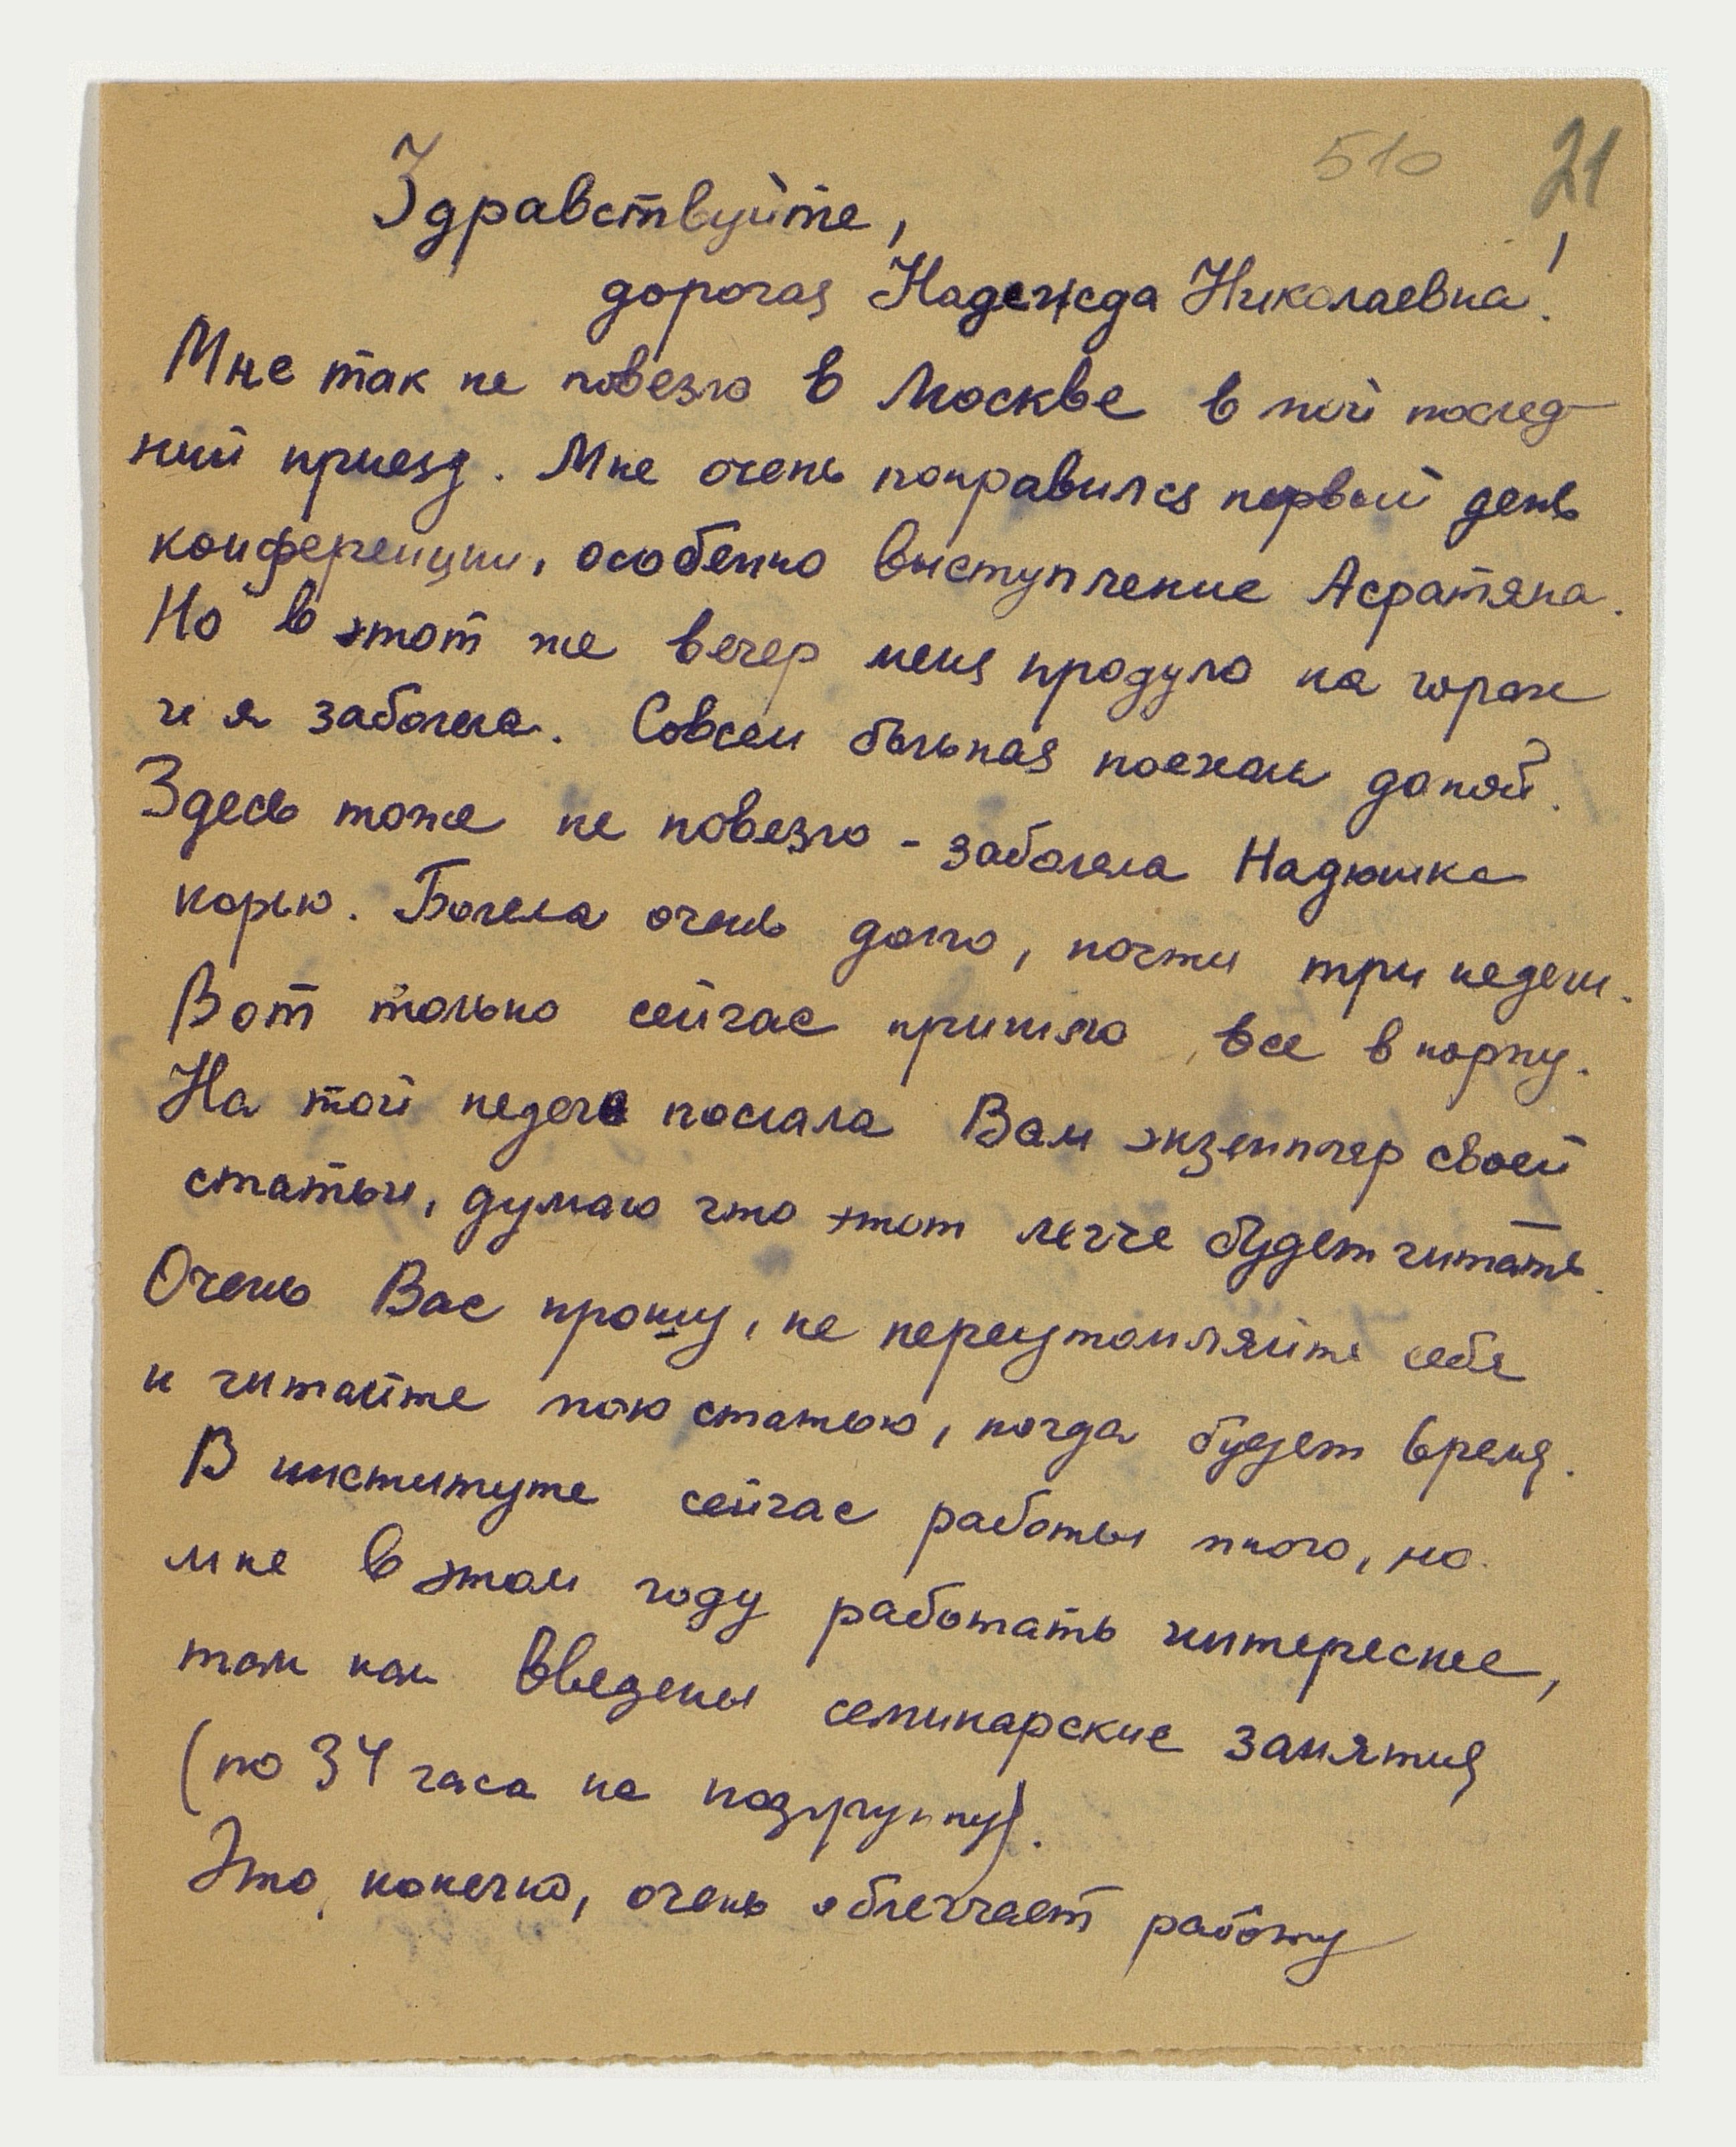 510 21
Здравствуйте,
дорогая Надежда Николаевна!
Мне так не повезло в Москве в мой послед-
ний приезд. Мне очень понравился первый день
конференции, особенно выступление Асратяна.
Но в этот же вечер меня продуло на
и я заболела. Совсем больная поехала домой.
Здесь тоже не повезло - заболела Надюшка
корью. Болела очень долго, почти три недели.
Вот только сейчас пришло все в норму.
На той неделе послала Вам экземпляр своей
статьи, думаю что этот легче будет читать.
Очень Вас прошу, не переутомляйте себя
и читайте мою статью, когда будет время.
В институте сейчас работы много, но
мне в этом году работать интереснее,
так как введены семинарские занятия
(по 34 часа на подгруппу).
Это, конечно, очень облегчает работу